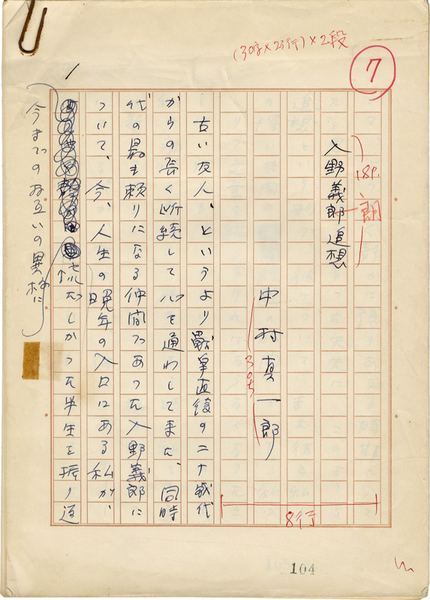 (30字×23行)×2段
7
18P.
朗
入野義郎追想
中村真一郎
8行
古い友人、というより戦争直後の二十歳代
からの長く断続して心を通わして来た、同時
代の最も頼りになる仲間であった入野義郎に
ついて、今、人生の晩年の入口にある私が、
慌だしかった半生を振り返
今までのお互いの異様に
104